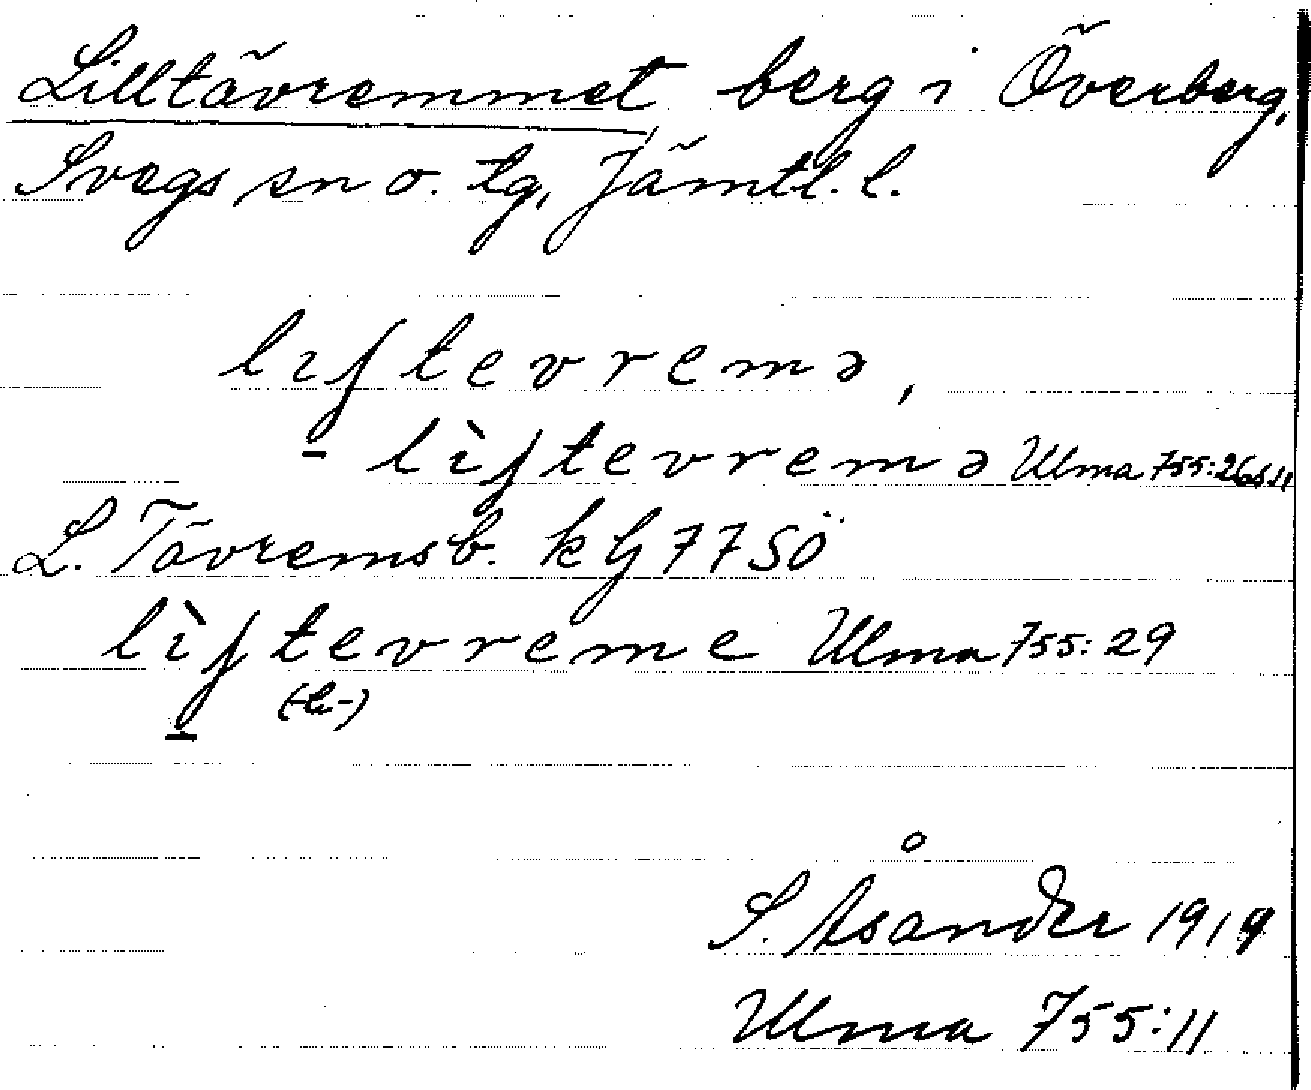 Lilltåvremmet berg i Överberg,
Svegs sn o. tg, Jämtl. l.
liʃtevremə,
- lìʃtevremə Ulma 755:26
L. Tåvremsb. k G 77 SÖ
lìʃtevreme Ulma 755:29
S. Åsander 1919
Ulma 755:11